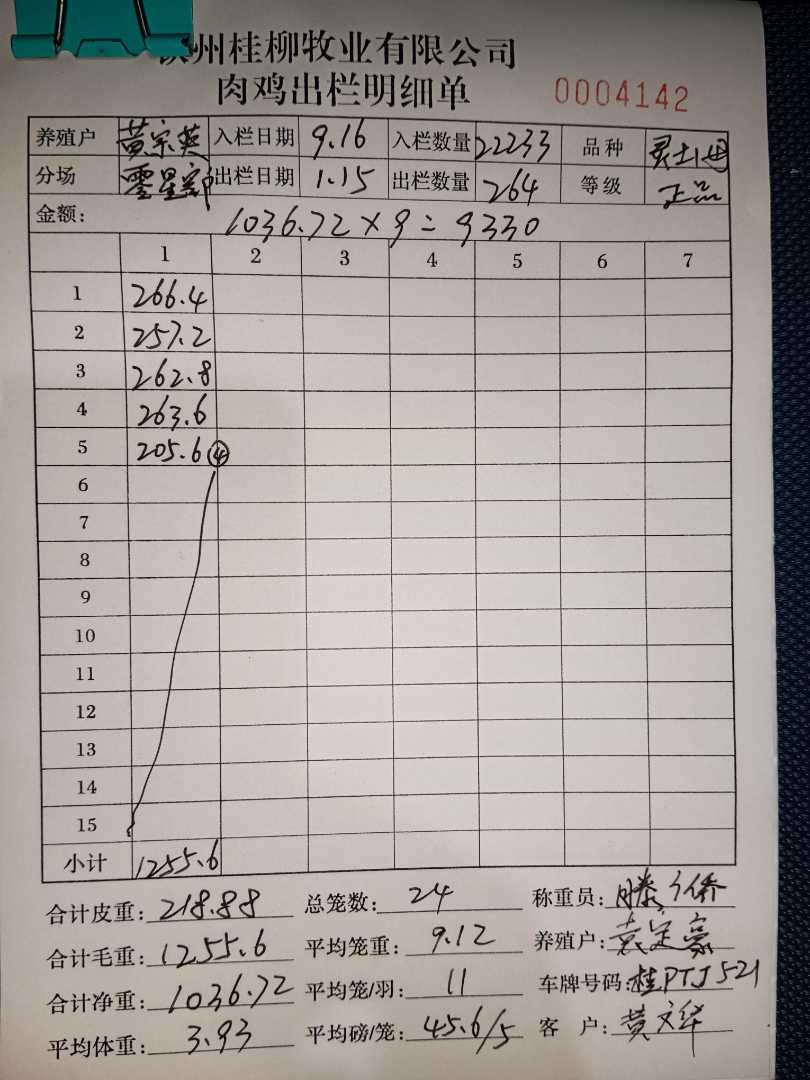 州桂柳牧业有限公司
肉鸡出栏明细单 0004142
养殖户 黄宗英 入栏日期 9.16 入栏数量 22233 品种
分场 零星部 出栏日期 1.15 出栏数量 264 等级 正品
金额: 1036.72×9=9330
1 2 3 4 5 6 7
1 266.4
2 257.2
3 262.8
4 263.6
5 205.6 ④
6
7
8
9
10
11
12
13
14
15
小计 1255.6
合计皮重: 218.88 总笼数: 24 称重员: 滕 侨
合计毛重: 1255.6 平均笼重: 9.12 养殖户: 袁定豪
合计净重: 1036.72 平均笼/羽: 11 车牌号码: 桂PTJ521
平均体重: 3.93 平均磅/笼: 45.6/5 客 户: 黄文华